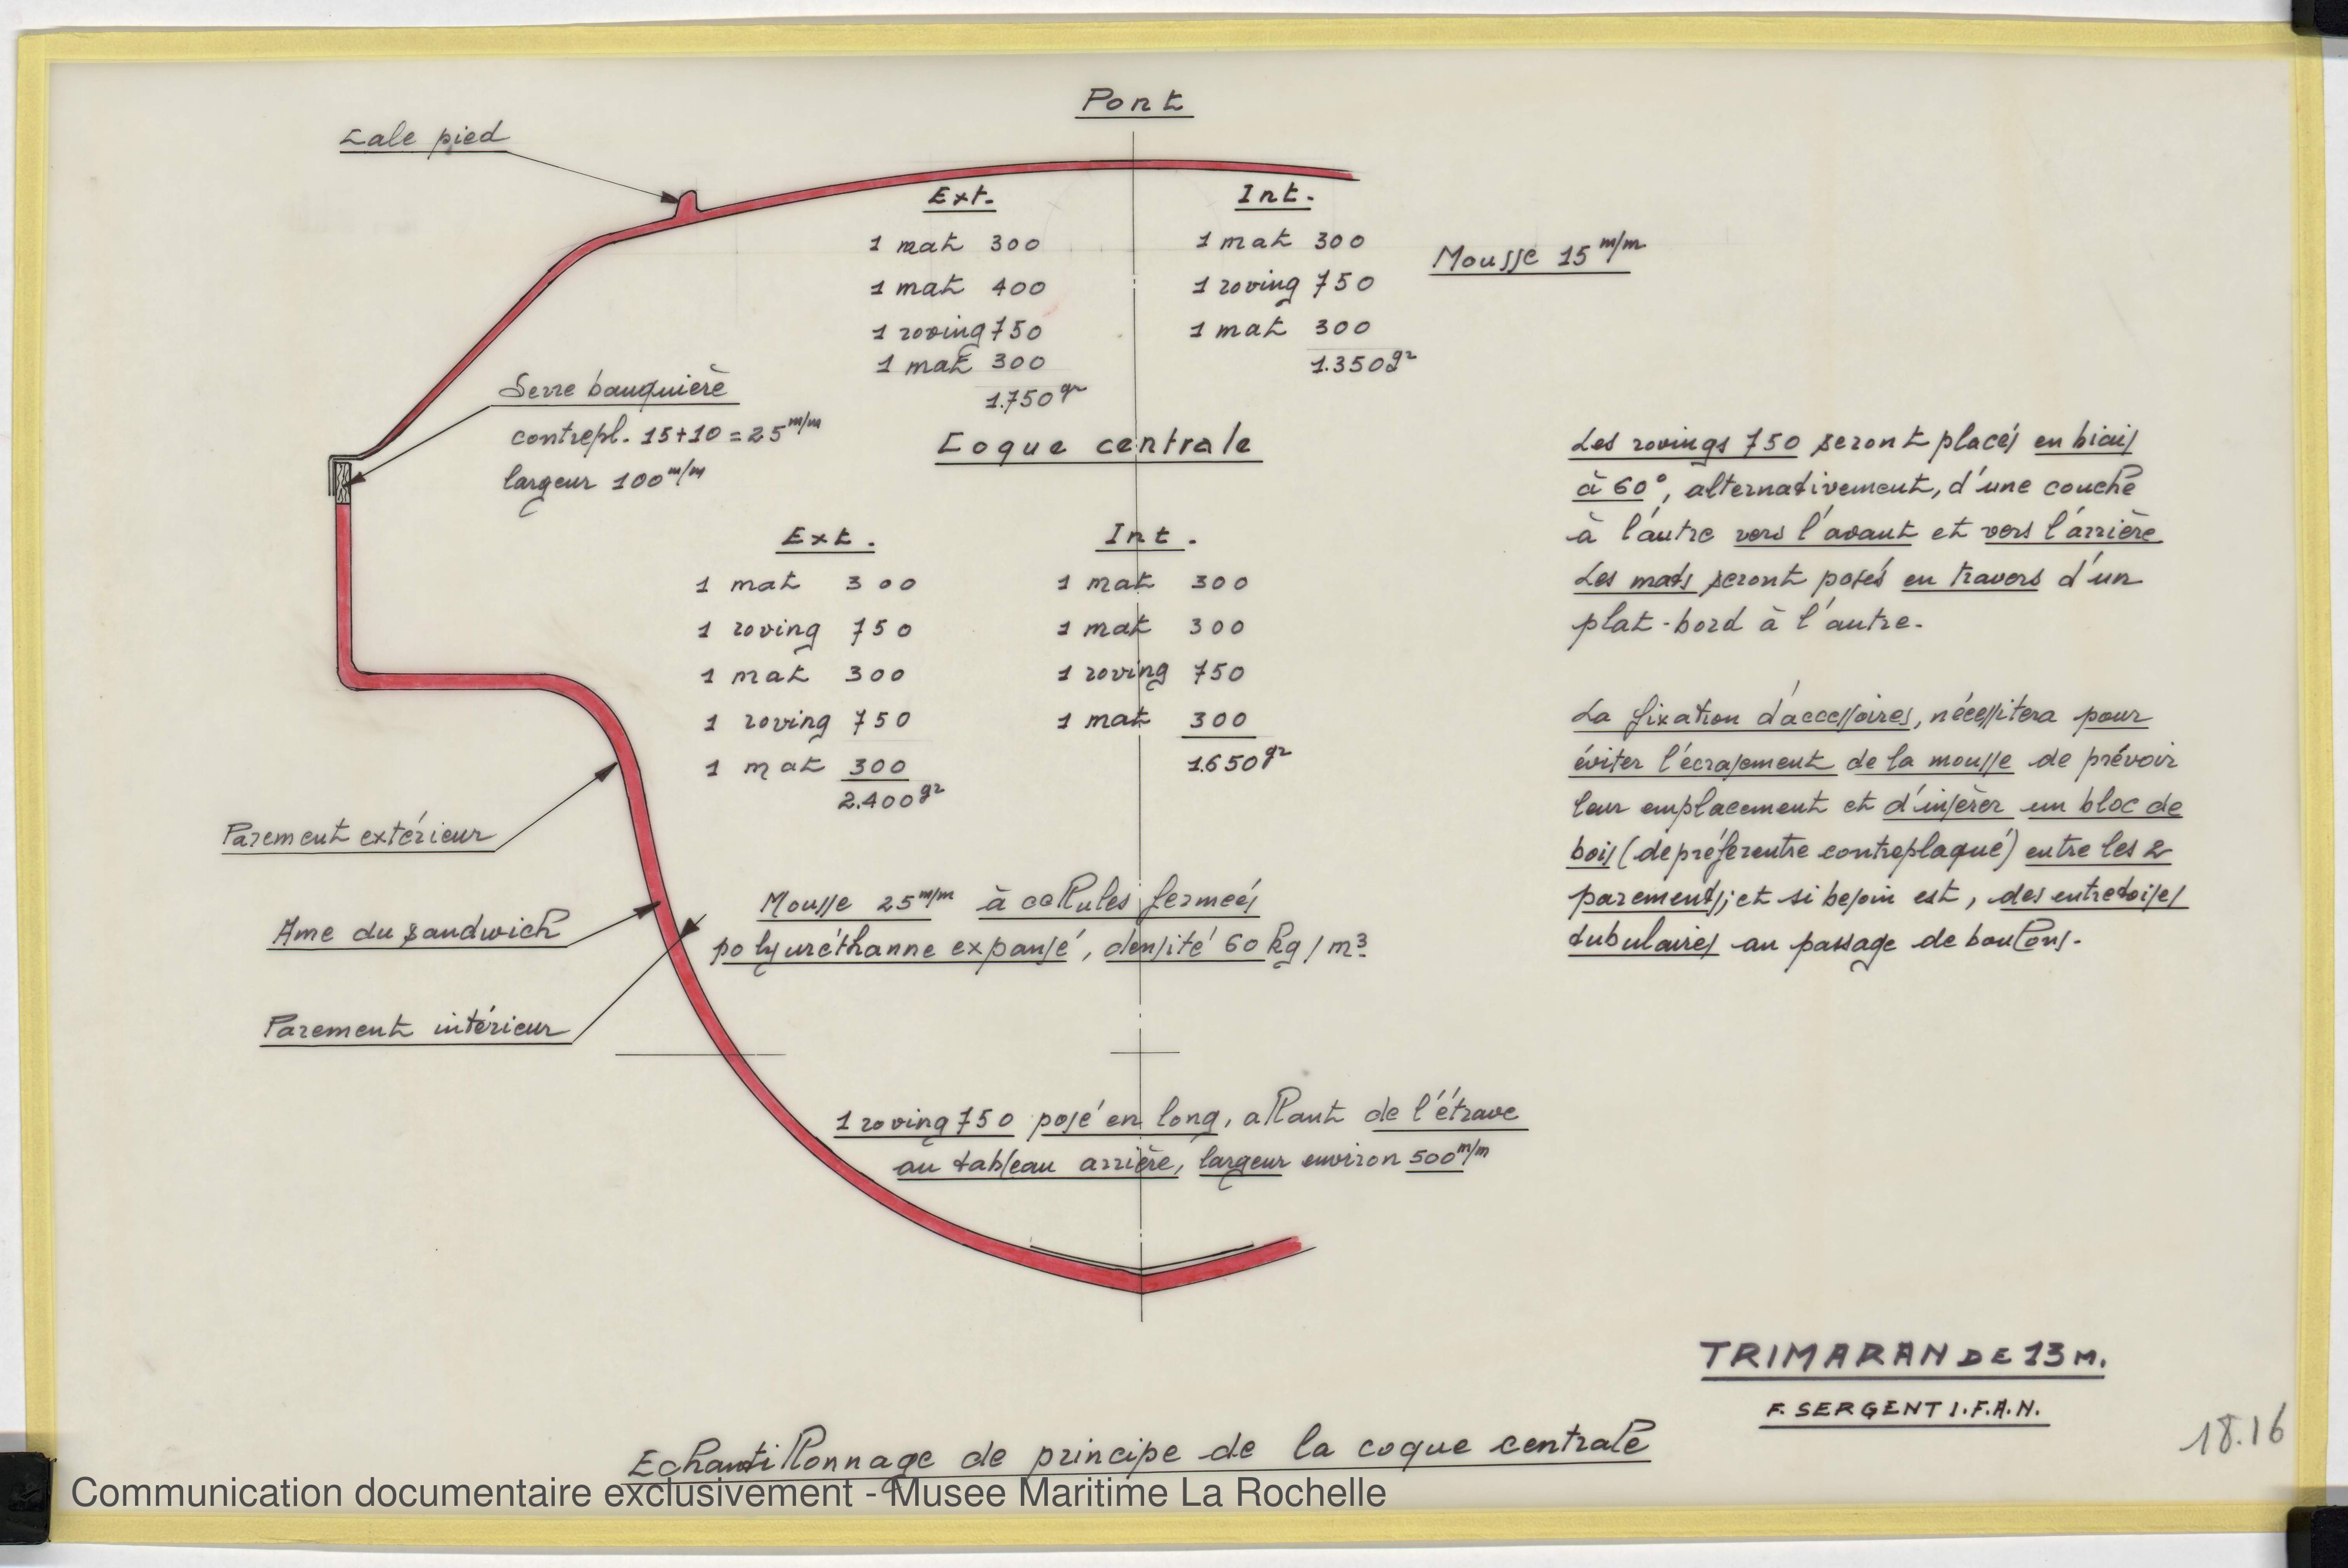 Pont
Cale pied
Ext.
1 mat 300
1 mat 400
1 roving 750
1 mat 300
1.750 gr
Int.
1 mat 300
1 roving 750
1 mat 300
1.350 gr
Mousse 15 m/m
Serre bauquière
contrepl. 15+10=25 m/m
largeur 100 m/m
Coque centrale
Ext.
1 mat 300
1 roving 750
1 mat 300
1 roving 750
1 mat 300
2.400 gr
Int.
1 mat 300
1 mat 300
1 roving 750
1 mat 300
1.650 gr
Les rovings 750 seront placés en biais
à 60°, alternativement, d'une couche
à l'autre vers l'avant et vers l'arrière
Les mats seront posés en travers d'un
plat-bord à l'autre.
La fixation d'accessoires, nécessitera pour
éviter l'écrasement de la mousse de prévoir
leur emplacement et d'insérer un bloc de
bois (de préférentre contreplaqué) entre les 2
parements; et si besoin est, des entretoises
tubulaires au passage de boulons.
Parement extérieur
Ame du sandwich
Parement intérieur
Mousse 25 m/m à cellules fermées
polyuréthanne expansé, densité 60 kg/m3
1 roving 750 posé en long, allant de l'étrave
au tableau arrière, largeur environ 500 m/m
TRIMARAN DE 13 M.
F. SERGENT I.F.A.N.
18.16
Echantillonnage de principe de la coque centrale
Communication documentaire exclusivement - Musee Maritime La Rochelle